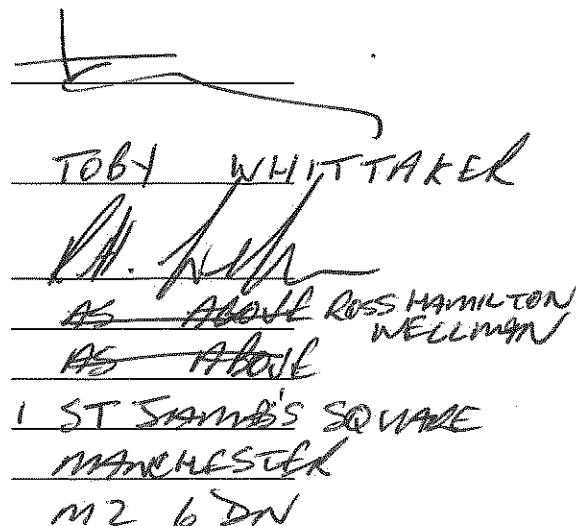 TOBY WHITTAKER
AS ABOVE ROSS HAMILTON
WELLMAN
AS ABOVE
1 ST JAMES'S SQUARE
MANCHESTER
M2 6DN